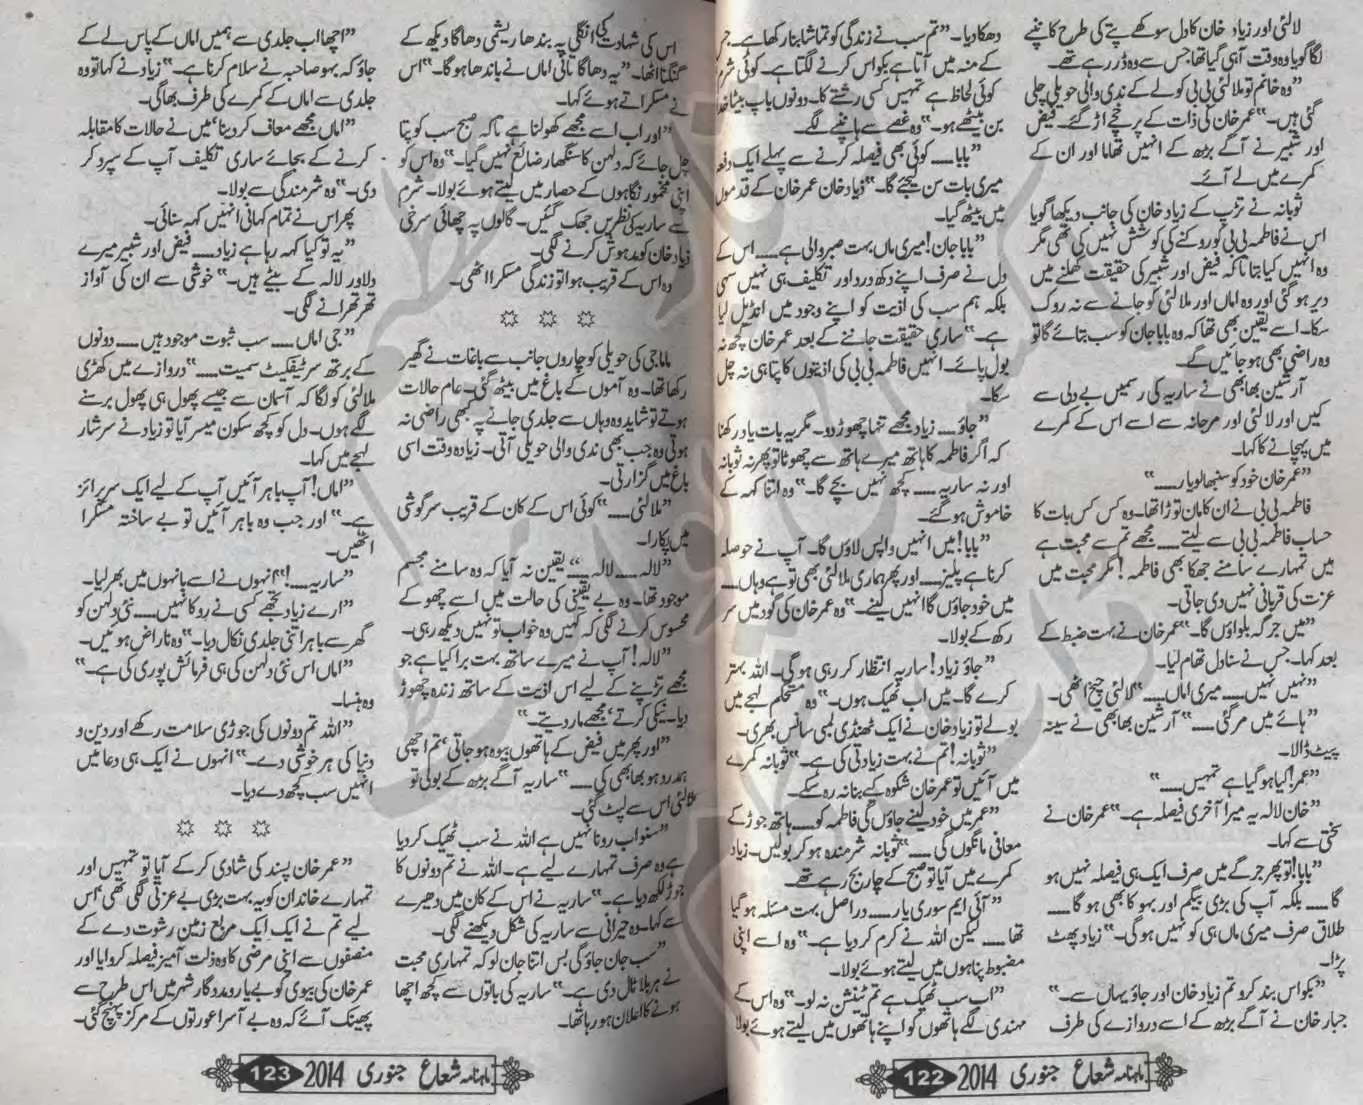 لالئی اور زیاد خان کا دل سوکھے پتے کی طرح کانپنے
لگا گویا وہ وقت آہی گیا تھا جس سے وہ ڈر رہے تھے۔
"وہ خانم تو ملالئی بی بی کو لے کے ندی والی حویلی چلی
گئی ہیں۔" عمر خان کی ذات کے پرخچے اڑ گئے۔ فیض
اور شبیر نے آگے بڑھ کے انہیں تھاما اور ان کے
کمرے میں لے آئے۔
ثوبانہ نے تڑپ کے زیاد خان کی جانب دیکھا گویا
اس نے فاطمہ بی بی کو روکنے کی کوشش نہیں کی تھی مگر
وہ انہیں کیا بتا تا کہ فیض اور شبیر کی حقیقت کھلنے میں
دیر ہو گئی اور وہ اماں اور ملالئی کو جانے سے نہ روک
سکا۔ اسے یقین بھی تھا کہ وہ بابا جان کو سب بتائے گا تو
وہ راضی بھی ہو جائیں گے۔
آرشین بھابھی نے ساریہ کی رسمیں بے دلی سے
کیں اور لالئی اور مرجانہ سے اسے اس کے کمرے
میں پہچانے کا کہا۔
"عمر خان خود کو سنبھالو یار۔۔۔۔"
فاطمہ بی بی نے ان کا مان توڑا تھا۔ وہ کس کس بات کا
حساب فاطمہ بی بی سے لیتے۔۔۔۔ مجھے تم سے محبت ہے
میں تمہارے سامنے جھکا بھی فاطمہ! مگر محبت میں
عزت کی قربانی نہیں دی جاتی۔
"میں جرگہ بلواؤں گا۔" عمر خان نے بہت ضبط کے
بعد کہا۔ جس نے سنا دل تھام لیا۔
"نہیں نہیں۔۔۔ میری اماں۔۔۔۔" لالئی چیخ اٹھی۔
"ہائے میں مر گئی۔۔۔۔" آرشین بھابھی نے سینہ
پیٹ ڈالا۔
"عمر! کیا ہو گیا ہے تمہیں۔۔۔۔"
"خان لالہ یہ میرا آخری فیصلہ ہے۔" عمر خان نے
سختی سے کہا۔
"بابا! تو پھر جرگے میں صرف ایک ہی فیصلہ نہیں ہو
گا۔۔۔۔ بلکہ آپ کی بڑی بیگم اور بہو کا بھی ہو گا۔۔۔۔
طلاق صرف میری ماں ہی کو نہیں ہو گی۔" زیاد پھٹ
پڑا۔
"بکواس بند کرو تم زیاد خان اور جاؤ یہاں سے۔"
جبار خان نے آگے بڑھ کے اسے دروازے کی طرف
دھکا دیا۔ "تم سب نے زندگی کو تماشا بنا رکھا ہے۔ جس
کے منہ میں آتا ہے بکواس کرنے لگتا ہے۔ کوئی شرم
کوئی لحاظ ہے تمہیں کسی رشتے کا۔ دونوں باپ بیٹا خدا
بن بیٹھے ہو۔" وہ غصے سے ہانپنے لگے۔
"بابا۔۔۔۔ کوئی بھی فیصلہ کرنے سے پہلے ایک دفعہ
میری بات سن لیجئے گا۔" زیاد خان عمر خان کے قدموں
میں بیٹھ گیا۔
"بابا جان! میری ماں بہت صبر والی ہے۔۔۔۔ اس کے
دل نے صرف اپنے دکھ درد اور تکلیف ہی نہیں سہی
بلکہ ہم سب کی اذیت کو اپنے وجود میں انڈیل لیا
ہے۔" ساری حقیقت جاننے کے بعد عمر خان کچھ نہ
بول پائے۔ انہیں فاطمہ بی بی کی اذیتوں کا پتا ہی نہ چل
سکا۔
"جاؤ۔۔۔۔ زیاد مجھے تنہا چھوڑ دو۔ مگر یہ بات یاد رکھنا
کہ اگر فاطمہ کا ہاتھ میرے ہاتھ سے چھوٹا تو پھر نہ ثوبانہ
اور نہ ساریہ۔۔۔۔ کچھ نہیں بچے گا۔" وہ اتنا کہہ کے
خاموش ہو گئے۔
"بابا! میں انہیں واپس لاؤں گا۔ آپ نے حوصلہ
کرنا ہے پلیز۔۔۔ اور پھر ہماری ملالئی بھی تو ہے وہاں۔۔۔
میں خود جاؤں گا انہیں لینے۔" وہ عمر خان کی گود میں سر
رکھ کے بولا۔
"جاؤ زیاد! ساریہ انتظار کر رہی ہوگی۔ اللہ بہتر
کرے گا۔ میں اب ٹھیک ہوں۔" وہ مستحکم لہجے میں
بولے تو زیاد خان نے ایک ٹھنڈی لمبی سانس بھری۔
"ثوبانہ! تم نے بہت زیادتی کی ہے۔" ثوبانہ کمرے
میں آئیں تو عمر خان شکوہ کے بنا نہ رہ سکے۔
"عمر میں خود لینے جاؤں گی فاطمہ کو۔۔۔ ہاتھ جوڑ کے
معافی مانگوں گی۔۔۔۔" ثوبانہ شرمندہ ہو کر بولیں۔ زیاد
کمرے میں آیا تو صبح کے چار بج رہے تھے۔
"آئی ایم سوری یار۔۔۔۔ دراصل بہت مسئلہ ہو گیا
تھا۔۔۔۔ لیکن اللہ نے کرم کر دیا ہے۔" وہ اسے اپنی
مضبوط پناہوں میں لیتے ہوئے بولا۔
"اب سب ٹھیک ہے تم ٹینشن نہ لو۔" وہ اس کے
مہندی لگے ہاتھوں کو اپنے ہاتھوں میں لیتے ہوئے بولا
ماہنامہ شعاع جنوری 2014 122
اس کی شہادت کی انگلی پہ بندھا ریشمی دھاگا دیکھ کے
گنگنا اٹھا۔ "یہ دھاگا نانی اماں نے باندھا ہوگا۔" اس
نے مسکراتے ہوئے کہا۔
"اور اب اسے مجھے کھولنا ہے تاکہ صبح سب کو پتا
چل جائے کہ دلہن کا سنگھار ضائع نہیں گیا۔" وہ اس کو
اپنی مخمور نگاہوں کے حصار میں لیتے ہوئے بولا۔ شرم
سے ساریہ کی نظریں جھک گئیں۔ گالوں پہ چھائی سرخی
زیاد خان کو مدہوش کرنے لگی۔
وہ اس کے قریب ہوا تو زندگی مسکرا اٹھی۔
☼ ☼ ☼
ماما جی کی حویلی کو چاروں جانب سے باغات نے گھیر
رکھا تھا۔ وہ آموں کے باغ میں بیٹھ گئی۔ عام حالات
ہوتے تو شاید وہ وہاں سے جلدی جانے پہ کبھی راضی نہ
ہوتی وہ جب بھی ندی والی حویلی آتی۔ زیادہ وقت اسی
باغ میں گزارتی۔
"ملالئی۔۔۔۔" کوئی اس کے کان کے قریب سرگوشی
میں پکارا۔
"لالہ۔۔۔۔ لالہ۔۔۔" یقین نہ آیا کہ وہ سامنے مجسم
موجود تھا۔ وہ بے یقینی کی حالت میں اسے چھو کے
محسوس کرنے لگی کہ کہیں وہ خواب تو نہیں دیکھ رہی۔
"لالہ! آپ نے میرے ساتھ بہت برا کیا ہے جو
مجھے تڑپنے کے لیے اس اذیت کے ساتھ زندہ چھوڑ
دیا۔ نیکی کرتے، مجھے مار دیتے۔"
"اور پھر میں فیض کے ہاتھوں بیوہ ہو جاتی، تم اچھی
ہمدرد ہو بھابھی کی۔۔۔۔" ساریہ آگے بڑھ کے بولی تو
ملالئی اس سے لپٹ گئی۔
"سنو اب رونا نہیں ہے اللہ نے سب ٹھیک کر دیا
ہے وہ صرف تمہارے لیے ہے۔ اللہ نے تم دونوں کا
جوڑ لکھ دیا ہے۔" ساریہ نے اس کے کان میں دھیرے
سے کہا۔ وہ حیرانی سے ساریہ کی شکل دیکھنے لگی۔
"سب جان جاؤ گی بس اتنا جان لو کہ تمہاری محبت
نے ہر بلا ٹال دی ہے۔" ساریہ کی باتوں سے کچھ اچھا
ہونے کا اعلان ہو رہا تھا۔
"اچھا اب جلدی سے ہمیں اماں کے پاس لے کے
جاؤ کہ بہو صاحبہ نے سلام کرنا ہے۔" زیاد نے کہا تو وہ
جلدی سے اماں کے کمرے کی طرف بھاگی۔
"اماں مجھے معاف کر دینا، میں نے حالات کا مقابلہ
کرنے کے بجائے ساری تکلیف آپ کے سپرد کر
دی۔" وہ شرمندگی سے بولا۔
پھر اس نے تمام کہانی انہیں کہہ سنائی۔
"یہ تو کیا کہہ رہا ہے زیاد۔۔۔۔ فیض اور شبیر میرے
دلاور لالہ کے بیٹے ہیں۔" خوشی سے ان کی آواز
تھرتھرانے لگی۔
"جی اماں۔۔۔۔ سب ثبوت موجود ہیں۔۔۔۔ دونوں
کے برتھ سرٹیفکیٹ سمیت۔۔۔۔" دروازے میں کھڑی
ملالئی کو لگا کہ آسمان سے جیسے پھول ہی پھول برسنے
لگے ہوں۔ دل کو کچھ سکون میسر آیا تو زیاد نے سرشار
لہجے میں کہا۔
"اماں! آپ باہر آئیں آپ کے لیے ایک سرپرائز
ہے۔" اور جب وہ باہر آئیں تو بے ساختہ مسکرا
اٹھیں۔
"ساریہ۔۔۔۔!" انہوں نے اسے بانہوں میں بھر لیا۔
"ارے زیاد تجھے کسی نے روکا نہیں۔۔۔۔ نئی دلہن کو
گھر سے باہر اتنی جلدی نکال دیا۔" وہ ناراض ہوئیں۔
"اماں اس نئی دلہن کی ہی فرمائش پوری کی ہے۔"
وہ ہنسا۔
"اللہ تم دونوں کی جوڑی سلامت رکھے اور دین و
دنیا کی ہر خوشی دے۔" انہوں نے ایک ہی دعا میں
انہیں سب کچھ دے دیا۔
☼ ☼ ☼
"عمر خان پسند کی شادی کر کے آیا تو تمہیں اور
تمہارے خاندان کو یہ بہت بڑی بے عزتی لگی تھی، اس
لیے تم نے ایک ایک مربع زمین رشوت دے کے
منصفوں سے اپنی مرضی کا وہ ذلت آمیز فیصلہ کروایا اور
عمر خان کی بیوی کو بے یار و مددگار شہر میں اس طرح سے
پھینک آئے کہ وہ بے آسرا عورتوں کے مرکز پہنچ گئی۔
ماہنامہ شعاع جنوری 2014 123